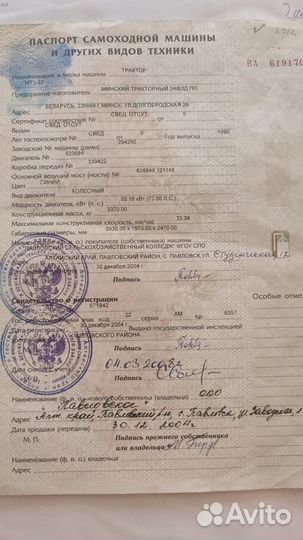 ПАСПОРТ САМОХОДНОЙ МАШИНЫ
И ДРУГИХ ВИДОВ ТЕХНИКИ
ВА 619170
ТРАКТОР
Наименование и марка машины
МТЗ 82
Предприятие-изготовитель МИНСКИЙ ТРАКТОРНЫЙ ЗАВОД ПО
БЕЛАРУСЬ, 220668 Г МИНСК, УЛ ДОЛГОБРОДСКАЯ 29
Адрес СВЕД ОТСУТ 0
Сертификат соответствия № от
СВЕД ОТСУТ 0
Выдан
СВЕД 0 1990
Акт гостехосмотра № от Год выпуска
294250
Заводской № машины (рамы)
623084
Двигатель №
339422
Коробка передач №
638849 124168
Основной ведущий мост (мосты) №
Цвет СИНИЙ
Вид движителя КОЛЕСНЫЙ
55.16 кВт (75.00 Л.С.)
Мощность двигателя, кВт (л. с.)
3370.00
Конструкционная масса, кг
33.38
Максимальная конструктивная скорость, км/час
3930.00 х 1970.00 х 2470.00
Габаритные размеры, мм
покупателя (собственника) машины
ПАВЛОВСКИЙ СЕЛЬСКОХОЗЯЙСТВЕННЫЙ КОЛЛЕДЖ ФГОУ СПО
АЛТАЙСКИЙ КРАЙ, ПАВЛОВСКИЙ РАЙОН, С ПАВЛОВСК, УЛ Студенческая 12
30 декабря 2004 г
Подпись
Свидетельство о регистрации
Особые отме
671842
знак код 22 серия АМ № 6357
Дата регистрации Выдано государственной инспекцией
30 декабря 2004 г
ПАВЛОВСКОГО РАЙОНА
Подпись
04.03.2008г
Наименование (ф. и. о.) владельца ООО
"Павловское"
Адрес Алт. край, Павловский р-н, с. Павловск, ул Заводская, 1
Дата продажи (передачи) 30.12.2004г
М. П. Подпись прежнего собственника
или владельца
Наименование (ф. и. о.) владельца
Адрес
Avito